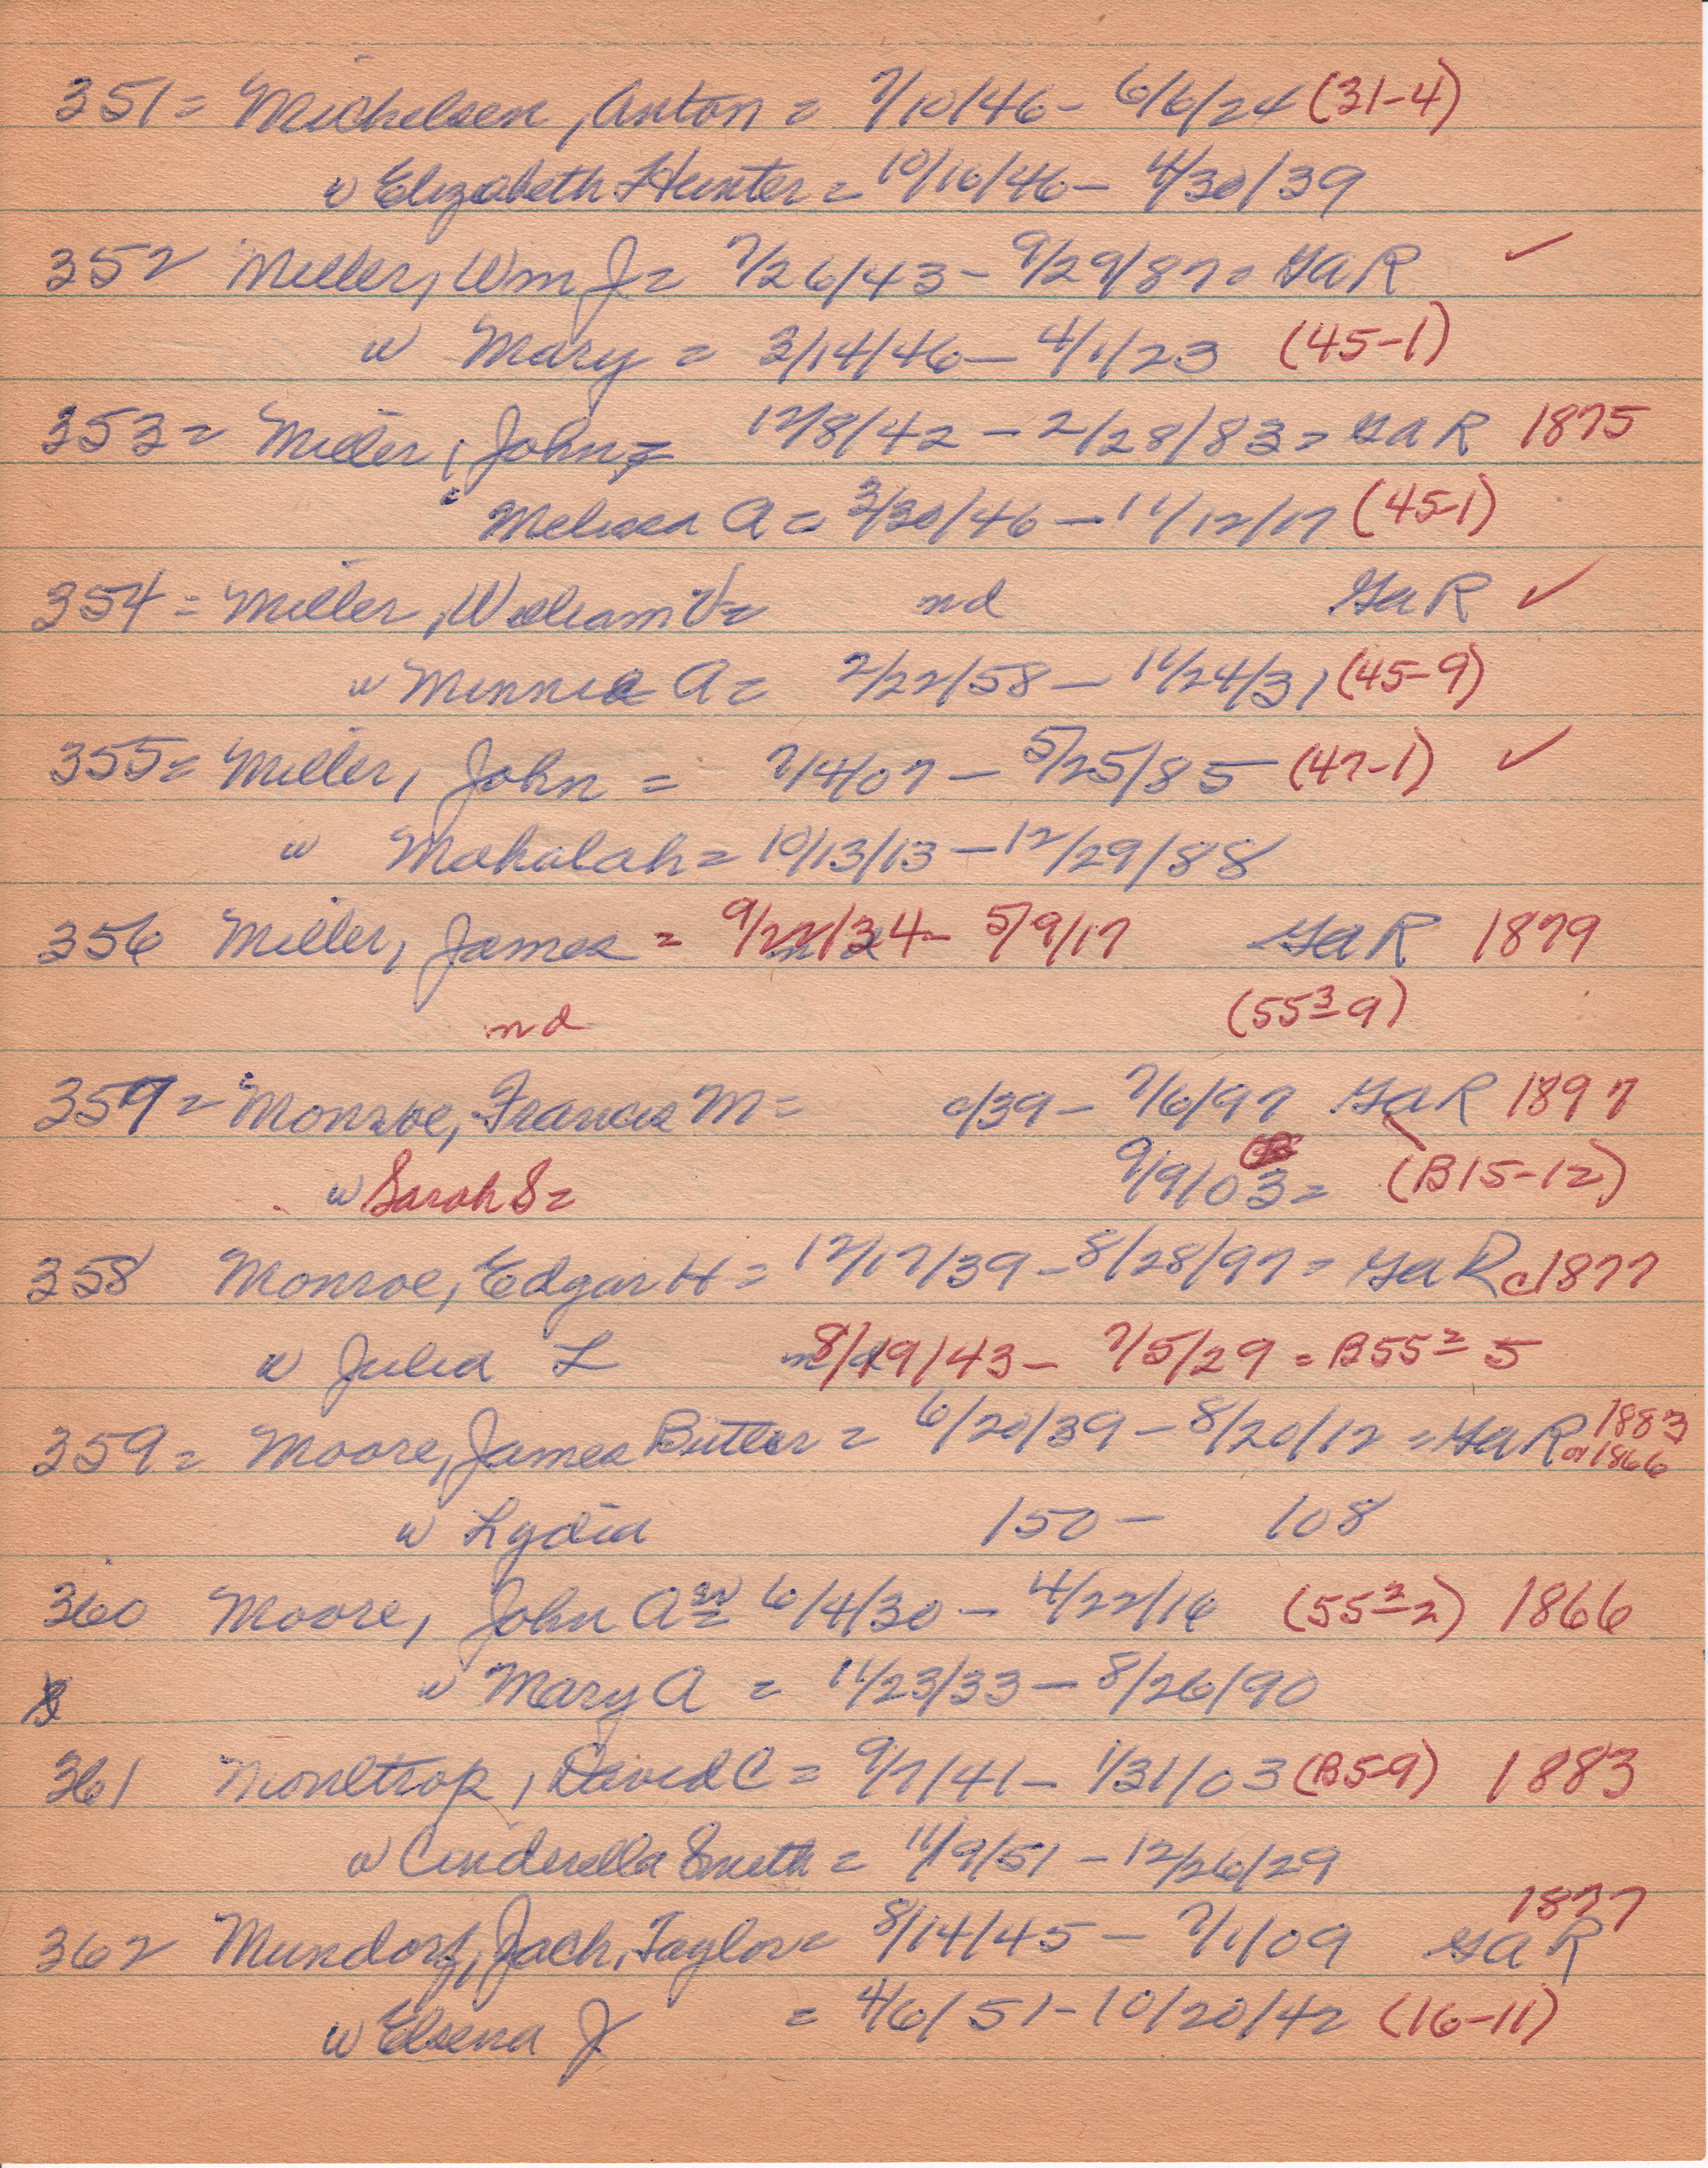 351 = Michelsen, Anton = 7/10/46 - 6/6/24 (31-4)
w Elizabeth Hunter = 10/16/46 - 4/30/39
352 Miller, Wm J = 7/26/43 - 9/29/87 = GAR ✓
w Mary = 3/14/46 - 4/1/23 (45-1)
353 = Miller, John = 12/8/42 - 2/28/83 = GAR 1875
Melissa A = 3/30/46 - 11/12/17 (45-1)
354 = Miller, William V = nd GAR ✓
w Minnie A = 2/22/58 - 11/24/31 (45-9)
355 = Miller, John = 7/4/07 - 5/25/85 (47-1) ✓
w Mahalah = 10/13/13 - 12/29/88
356 Miller, James = 9/22/34 - 5/9/17 GAR 1879
nd (55³-9)
357 = Monroe, Francis M = c/39 - 7/6/97 GAR 1897
w Sarah S = 9/9/03 = (B15-12)
358 Monroe, Edgar H = 12/17/39 - 8/28/97 = GAR c1877
w Julia L 8/19/43 - 7/5/29 = B55² 5
359 = Moore, James Butler = 6/20/39 - 8/20/12 = GAR 1883
or 1866
w Lydia 150 - 108
360 Moore, John A sr = 6/4/30 - 4/22/16 (55²-2) 1866
w Mary A = 11/23/33 - 8/26/90
361 Moultrop, David C = 9/7/41 - 1/31/03 (B5-9) 1883
w Cinderella Smith = 11/9/51 - 12/26/29
1877
362 Mundorf, Zach, Taylor = 8/14/45 - 7/1/09 GAR
w Elsena J = 4/6/51 - 10/20/42 (16-11)